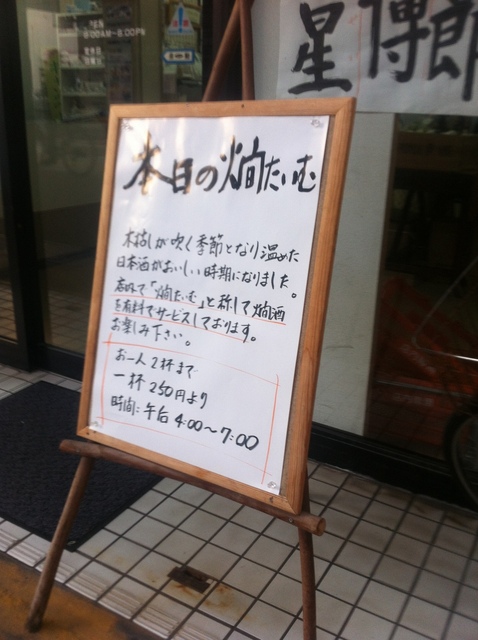 星博郎
8:00AM~8:00PM
本日の燗たいむ
木枯しが吹く季節となり温めた
日本酒がおいしい時期になりました。
店内で「燗たいむ」と称して燗酒
を有料でサービスしております。
お楽しみ下さい。
お一人2杯まで
一杯 250円より
時間:午后 4:00〜7:00